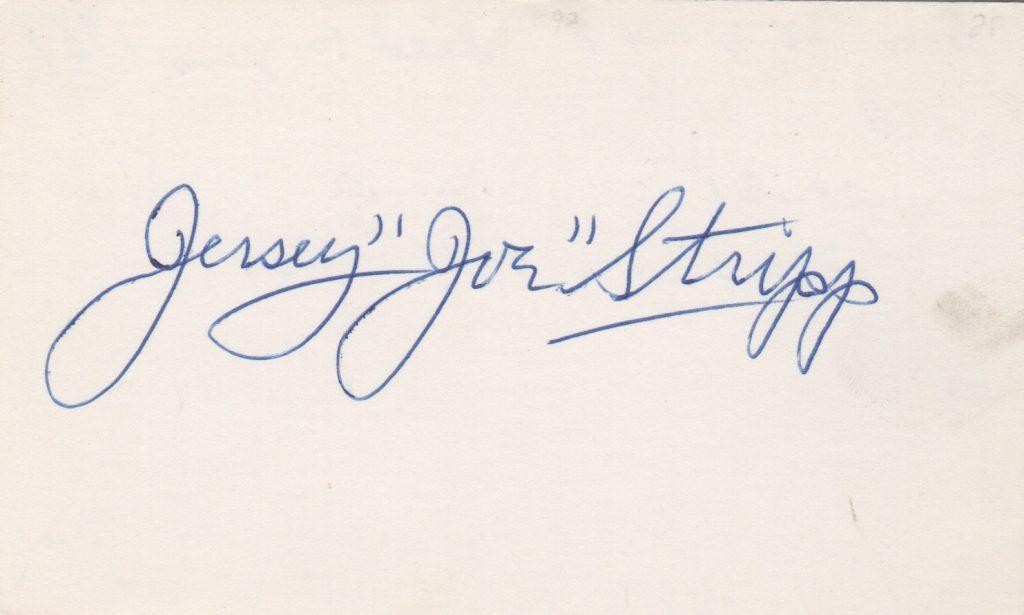 Jersey "Joe" Stripp